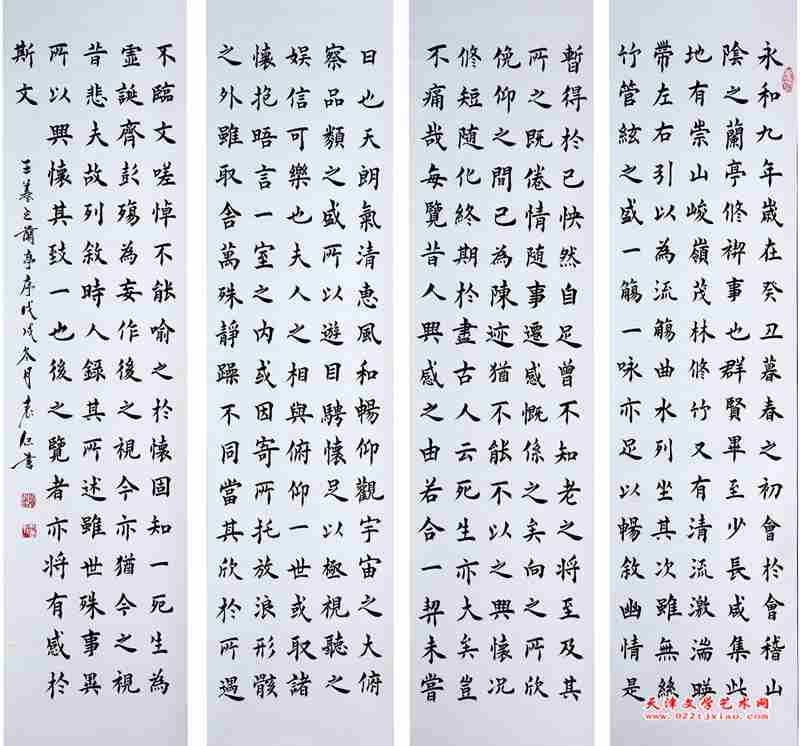 永和九年歲在癸丑暮春之初會於會稽山
陰之蘭亭修禊事也群賢畢至少長咸集此
地有崇山峻嶺茂林修竹又有清流激湍暎
帶左右引以為流觴曲水列坐其次雖無絲
竹管絃之盛一觴一咏亦足以暢敘幽情是
暫得於己快然自足曾不知老之將至及其
所之既倦情隨事遷感慨係之矣向之所欣
俛仰之間已為陳迹猶不能不以之興懷況
修短隨化終期於盡古人云死生亦大矣豈
不痛哉每覽昔人興感之由若合一契未嘗
日也天朗氣清惠風和暢仰觀宇宙之大俯
察品類之盛所以遊目騁懷足以極視聽之
娛信可樂也夫人之相與俯仰一世或取諸
懷抱晤言一室之內或因寄所托放浪形骸
之外雖取舍萬殊靜躁不同當其欣於所遇
不臨文嗟悼不能喻之於懷固知一死生為
虛誕齊彭殤為妄作後之視今亦猶今之視
昔悲夫故列敘時人錄其所述雖世殊事異
所以興懷其致一也後之覽者亦將有感於
斯文
王羲之蘭亭序戊戌冬月袁書
天津文学艺术网
www.022tjxiao.com